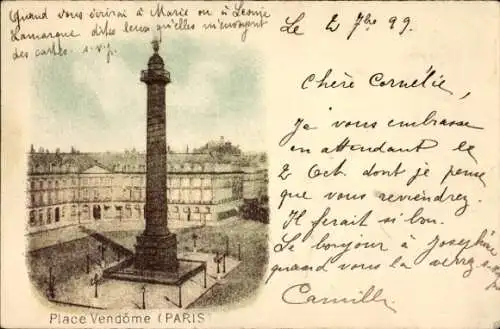 Quand vous écrirai à Marie ou à Leonie
Lamarque dites leur qu'elles m'envoyent
des cartes s.v.p.
Le 2 7bre 99.
Chère Cornélie,
Je vous embrasse
en attendant le
2 Oct. dont je pense
que vous reviendrez.
Il ferait si bon.
Le bonjour à Joséphine
quand vous la verrez
Camille.
Place Vendôme (PARIS